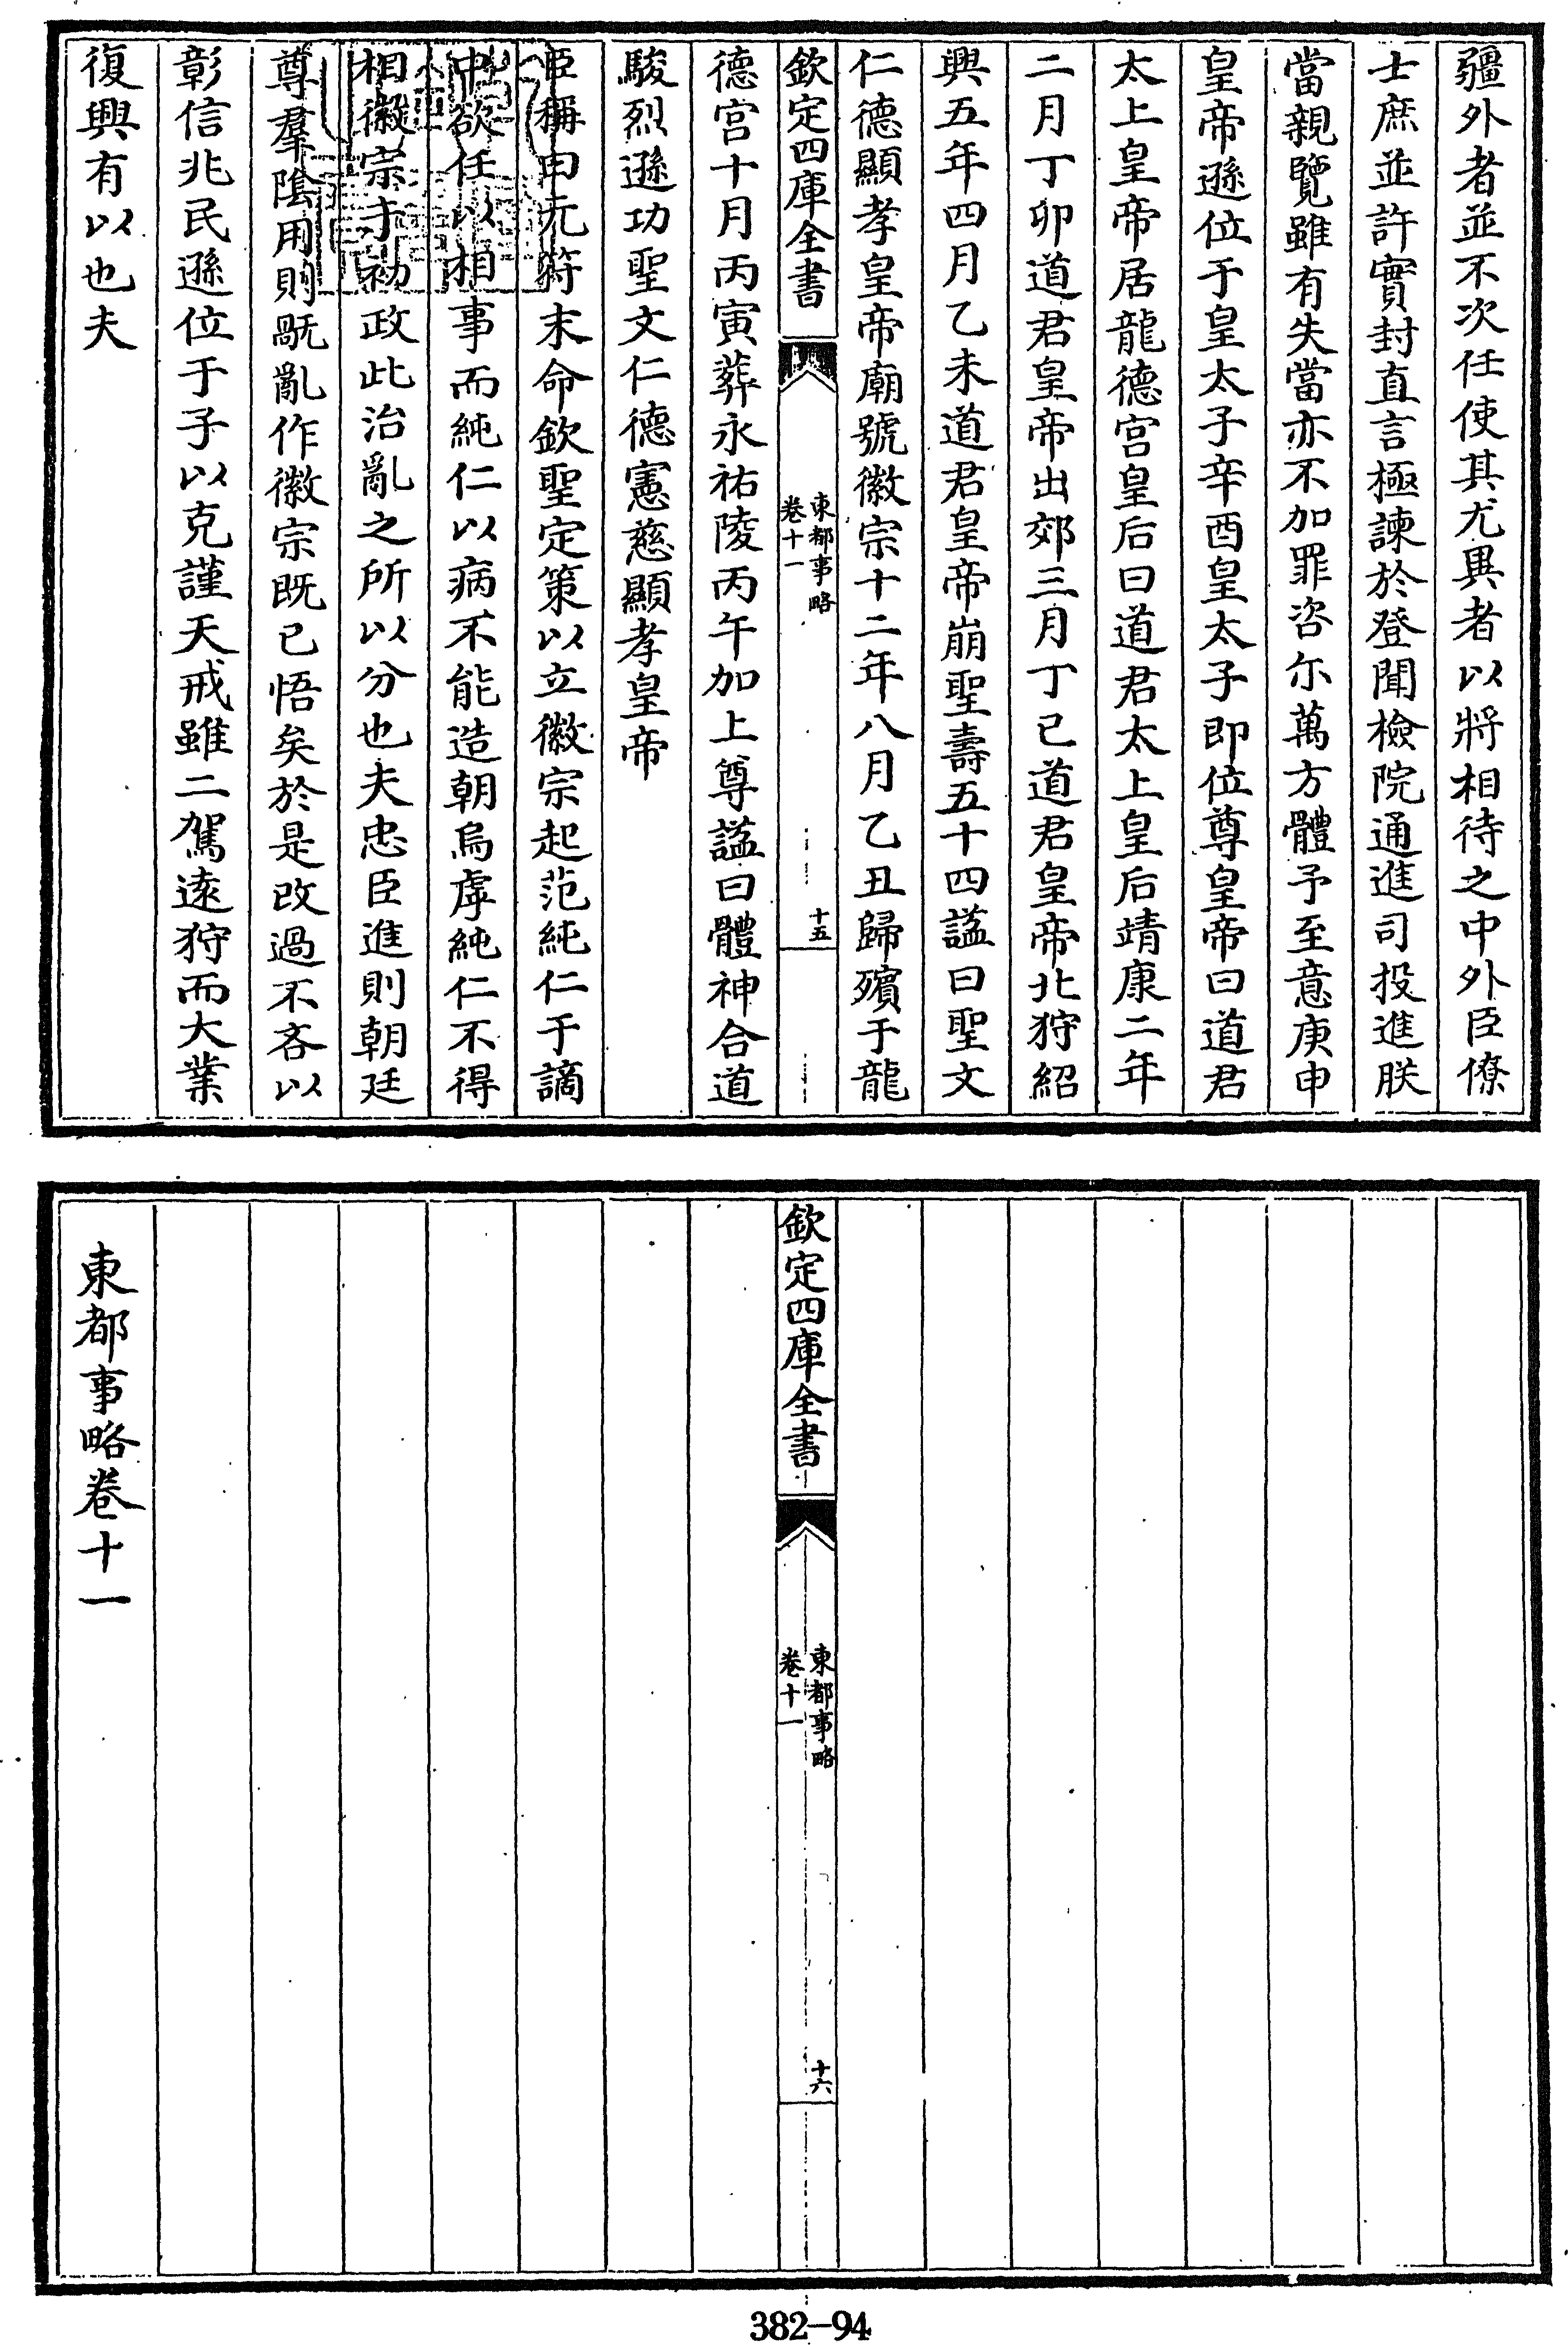 疆外者並不次任使其尤異者以將相待之中外臣僚
士庶並許實封直言極諫於登聞檢院通進司投進朕
當親覽雖有失當亦不加罪咨尔萬方體予至意庚申
皇帝遜位于皇太子辛酉皇太子即位尊皇帝曰道君
太上皇帝居龍德宫皇后曰道君太上皇后靖康二年
二月丁卯道君皇帝出郊三月丁巳道君皇帝北狩紹
興五年四月乙未道君皇帝崩聖壽五十四諡曰聖文
仁德顯孝皇帝廟號徽宗十二年八月乙丑歸殯于龍
欽定四庫全書
東都事略
卷十一
十五
德宫十月丙寅葬永祐陵丙午加上尊諡曰體神合道
駿烈遜功聖文仁德憲慈顯孝皇帝
臣稱曰元符末命欽聖定策以立徽宗起范純仁于謫
中欲任以相事而純仁以病不能造朝烏虖純仁不得
相徽宗于初政此治亂之所以分也夫忠臣進則朝廷
尊羣隂用則翫亂作徽宗既已悟矣於是改過不吝以
彰信兆民遜位于子以克謹天戒雖二駕逺狩而大業
復興有以也夫
欽定四庫全書
東都事略
卷十一
十六
東都事略卷十一
382-94